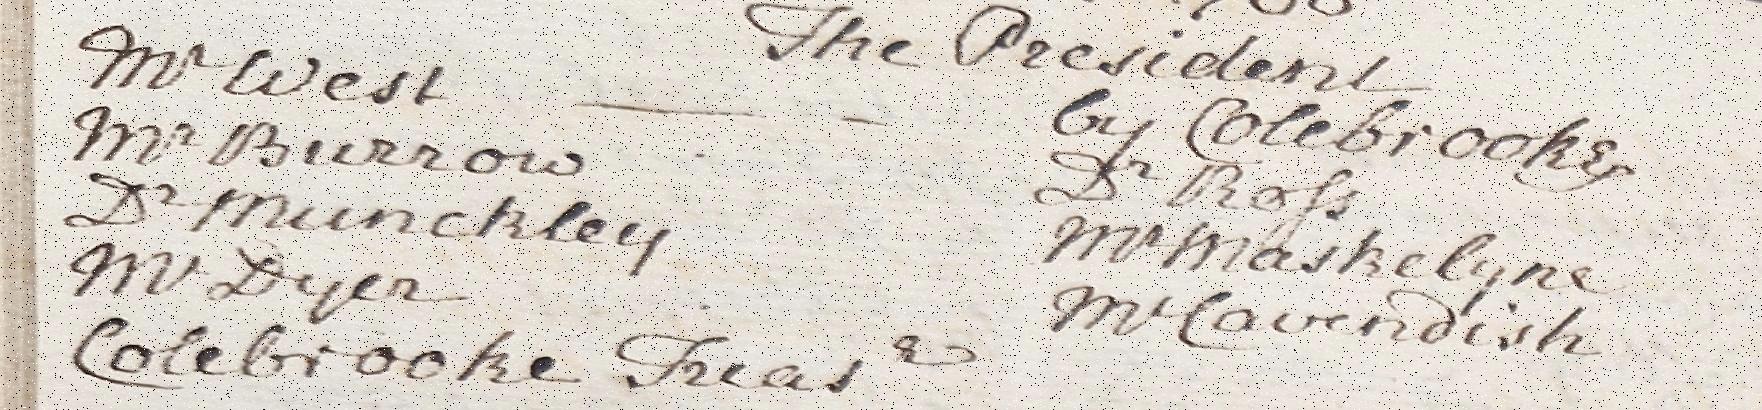 The President
Mr West
by Colebrooke
Mr Burrow
Dr Ross
Dr Munckley
Mr Maskelyne
Mr Dyer
Mr Cavendish
Colebrooke Treasr